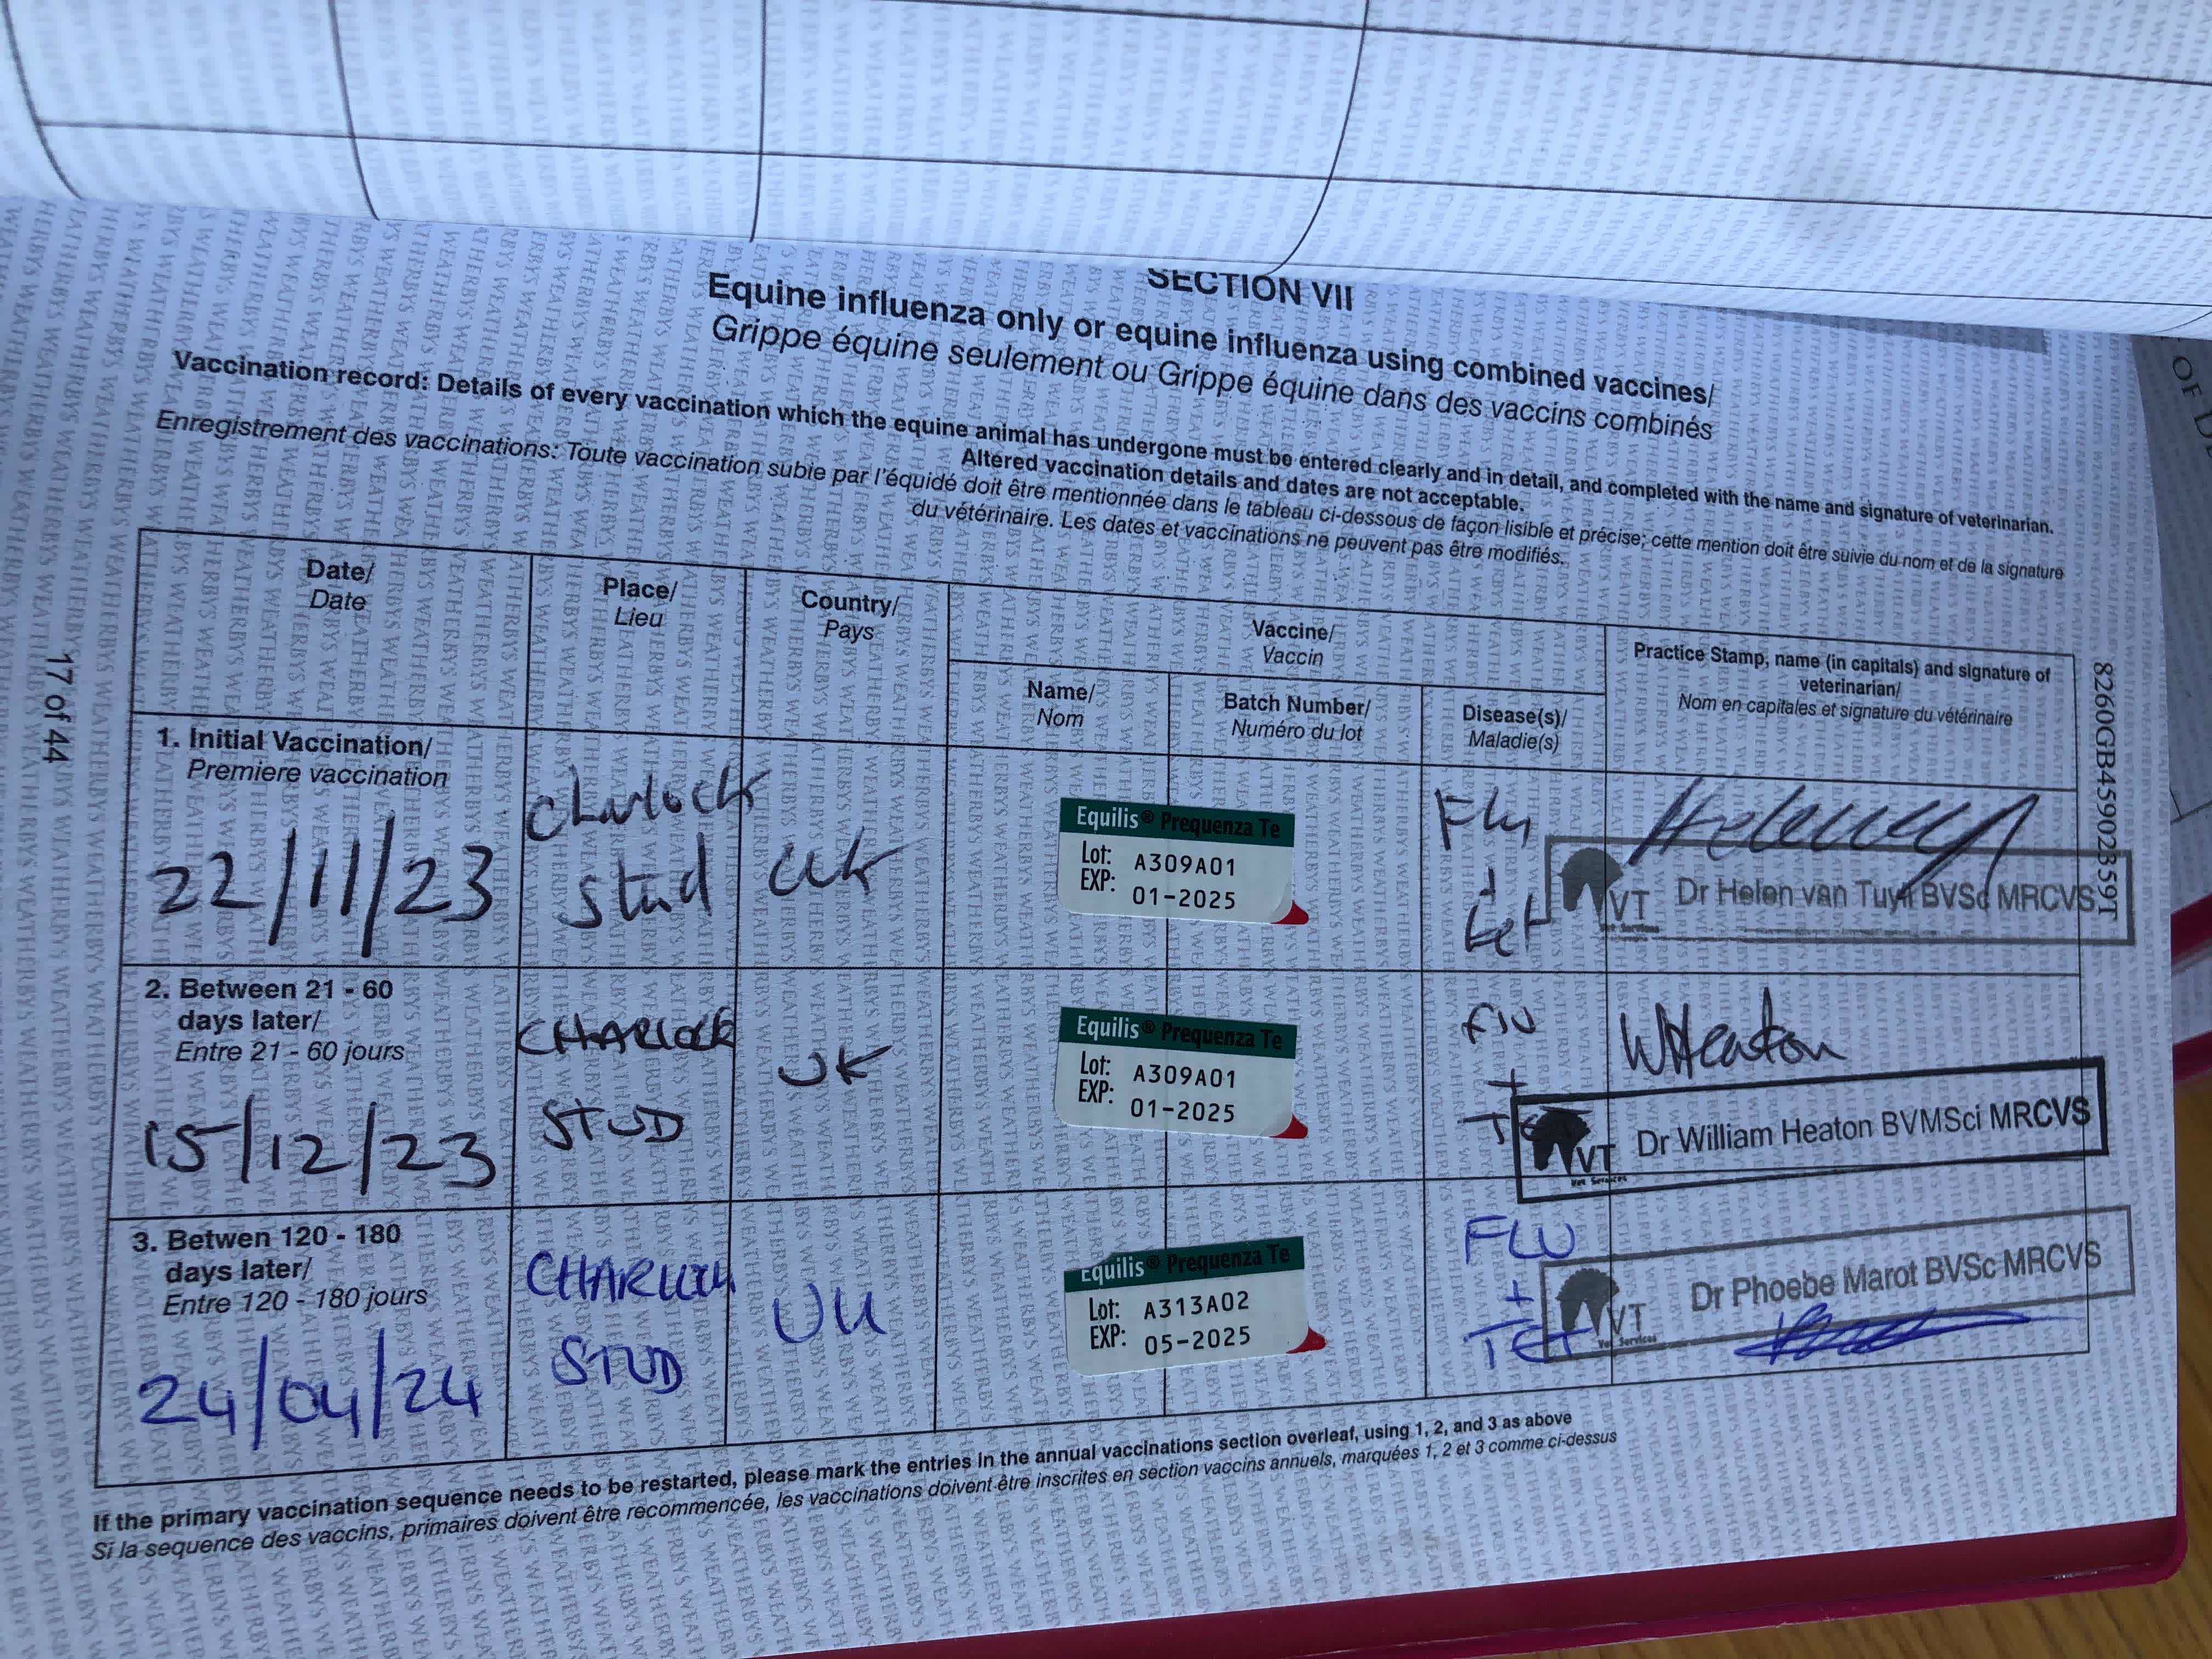 SECTION VII
Equine influenza only or equine influenza using combined vaccines/
Grippe équine seulement ou Grippe équine dans des vaccins combinés
Vaccination record: Details of every vaccination which the equine animal has undergone must be entered clearly and in detail, and completed with the name and signature of veterinarian.
Altered vaccination details and dates are not acceptable.
Enregistrement des vaccinations: Toute vaccination subie par l'équidé doit être mentionnée dans le tableau ci-dessous de façon lisible et précise; cette mention doit être suivie du nom et de la signature
du vétérinaire. Les dates et vaccinations ne peuvent pas être modifiés.
Date/
Date
Place/
Lieu
Country/
Pays
Vaccine/
Vaccin
Name/
Nom
Batch Number/
Numéro du lot
Disease(s)/
Maladie(s)
Practice Stamp, name (in capitals) and signature of
veterinarian/
Nom en capitales et signature du vétérinaire
1. Initial Vaccination/
Premiere vaccination
22/11/23
Charlock
Stud
UK
Equilis® Prequenza Te
Lot: A309A01
EXP: 01-2025
Flu
+
tet
VT
Vet Services
Dr Helen van Tuyll BVSc MRCVS
2. Between 21 - 60
days later/
Entre 21 - 60 jours
15/12/23
CHARLOCK
STUD
UK
Equilis® Prequenza Te
Lot: A309A01
EXP: 01-2025
FLU
+
WHeaton
VT
Vet Services
Dr William Heaton BVMSci MRCVS
3. Betwen 120 - 180
days later/
Entre 120 - 180 jours
24/04/24
CHARLOCK
STUD
UK
Equilis® Prequenza Te
Lot: A313A02
EXP: 05-2025
FLU
+
TET
VT
Vet Services
Dr Phoebe Marot BVSc MRCVS
If the primary vaccination sequence needs to be restarted, please mark the entries in the annual vaccinations section overleaf, using 1, 2, and 3 as above
Si la sequence des vaccins, primaires doivent être recommencée, les vaccinations doivent être inscrites en section vaccins annuels, marquées 1, 2 et 3 comme ci-dessus
17 of 44
8260GB45902359T
OF
WEATHERBYS